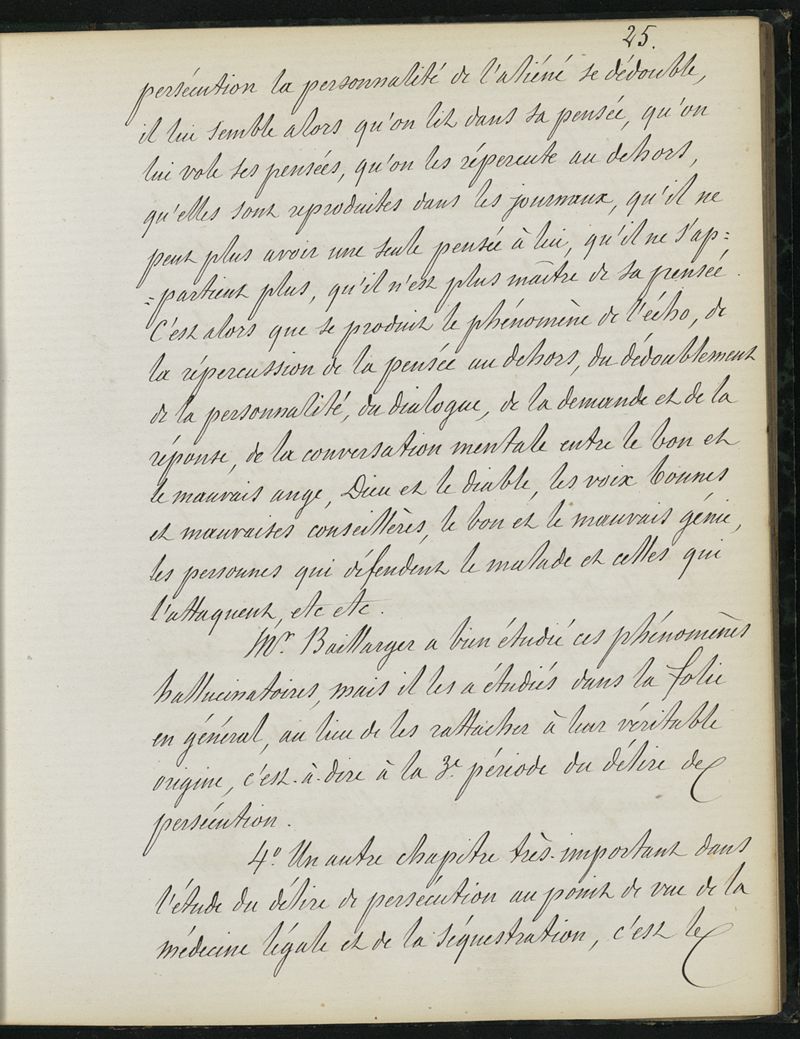 25.
persécution la personnalité de l'aliéné se dédouble,
il lui semble alors qu'on lit dans sa pensée, qu'on
lui vole ses pensées, qu'on les répercute au dehors,
qu'elles sont reproduites dans les journaux, qu'il ne
peut plus avoir une seule pensée à lui, qu'il ne s'ap=
=partient plus, qu'il n'est plus maître de sa pensée.
C'est alors que se produit le phénomène de l'écho, de
la répercussion de la pensée au dehors, du dédoublement
de la personnalité, du dialogue, de la demande et de la
réponse, de la conversation mentale entre le bon et
le mauvais ange, Dieu et le diable, les voix bonnes
et mauvaises conseillères, le bon et le mauvais génie,
les personnes qui défendent le malade et celles qui
l'attaquent, etc etc.
Mr. Baillarger a bien étudié ces phénomènes
hallucinatoires, mais il les a étudiés dans la folie
en général, au lieu de les rattacher à leur véritable
origine, c'est-à-dire à la 3e. période du délire de
persécution.
4o. Un autre chapitre très-important dans
l'étude du délire de persécution au point de vue de la
médecine légale et de la séquestration, c'est le